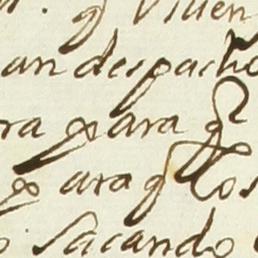 q Viven
an despacho
ra para q
para q los
sacando